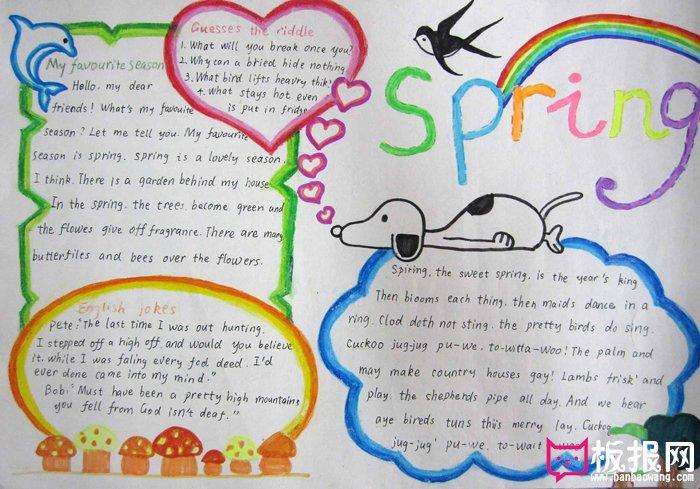 My favourite season
Hello, my dear
friends! What's my favouite
season? Let me tell you. My favourite
season is spring. spring is a lovely season,
I think. There is a garden behind my house
In the spring. the trees become green and
the flowes give off fragrance. There are many
butterflies and bees over the flowers.
Guesses the riddle
1. What will you break once you?
2. Why can a bried hide nothing
3. What bird lifts heavry thik?
4. What stays hot even
is put in fridge
English jokes
Pete: "The last time I was out hunting.
I stepped off a high off. and would you believe
it. while I was faling every fod deed. I'd
ever done came into my mind."
Bob: "Must have been a pretty high mountains
you fell from God isn't deaf."
Spring
Spiring, the sweet spring, is the year's king
Then biooms each thing. then maids dance in a
ring. Clod doth not sting. the pretty birds do sing.
Cuckoo jug-jug pu-we. to-witta-woo! The palm and
may make country houses gay! Lambs frisk' and
play. the shepherds pipe all day. And we hear
aye bireds tuns this merry lay. Cuckoo
jug-jug' pu-we. to-wait
板报网
www.banbaowang.com